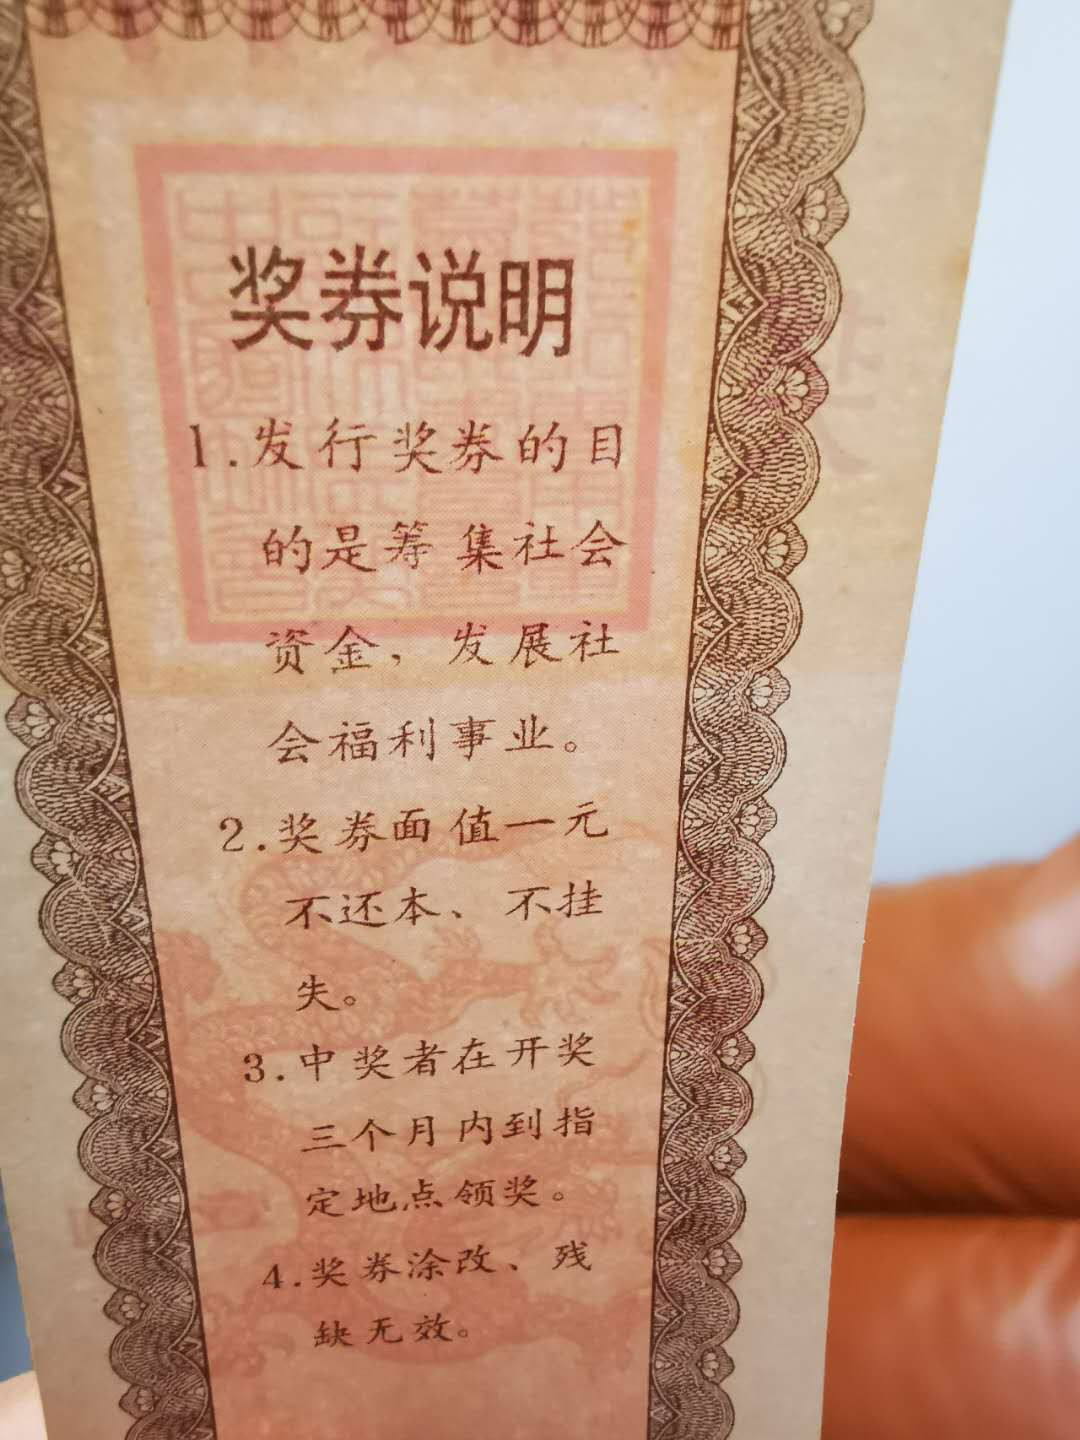 奖券说明
1.发行奖券的目
的是筹集社会
资金，发展社
会福利事业。
2.奖券面值一元
不还本、不挂
失。
3.中奖者在开奖
三个月内到指
定地点领奖。
4.奖券涂改、残
缺无效。